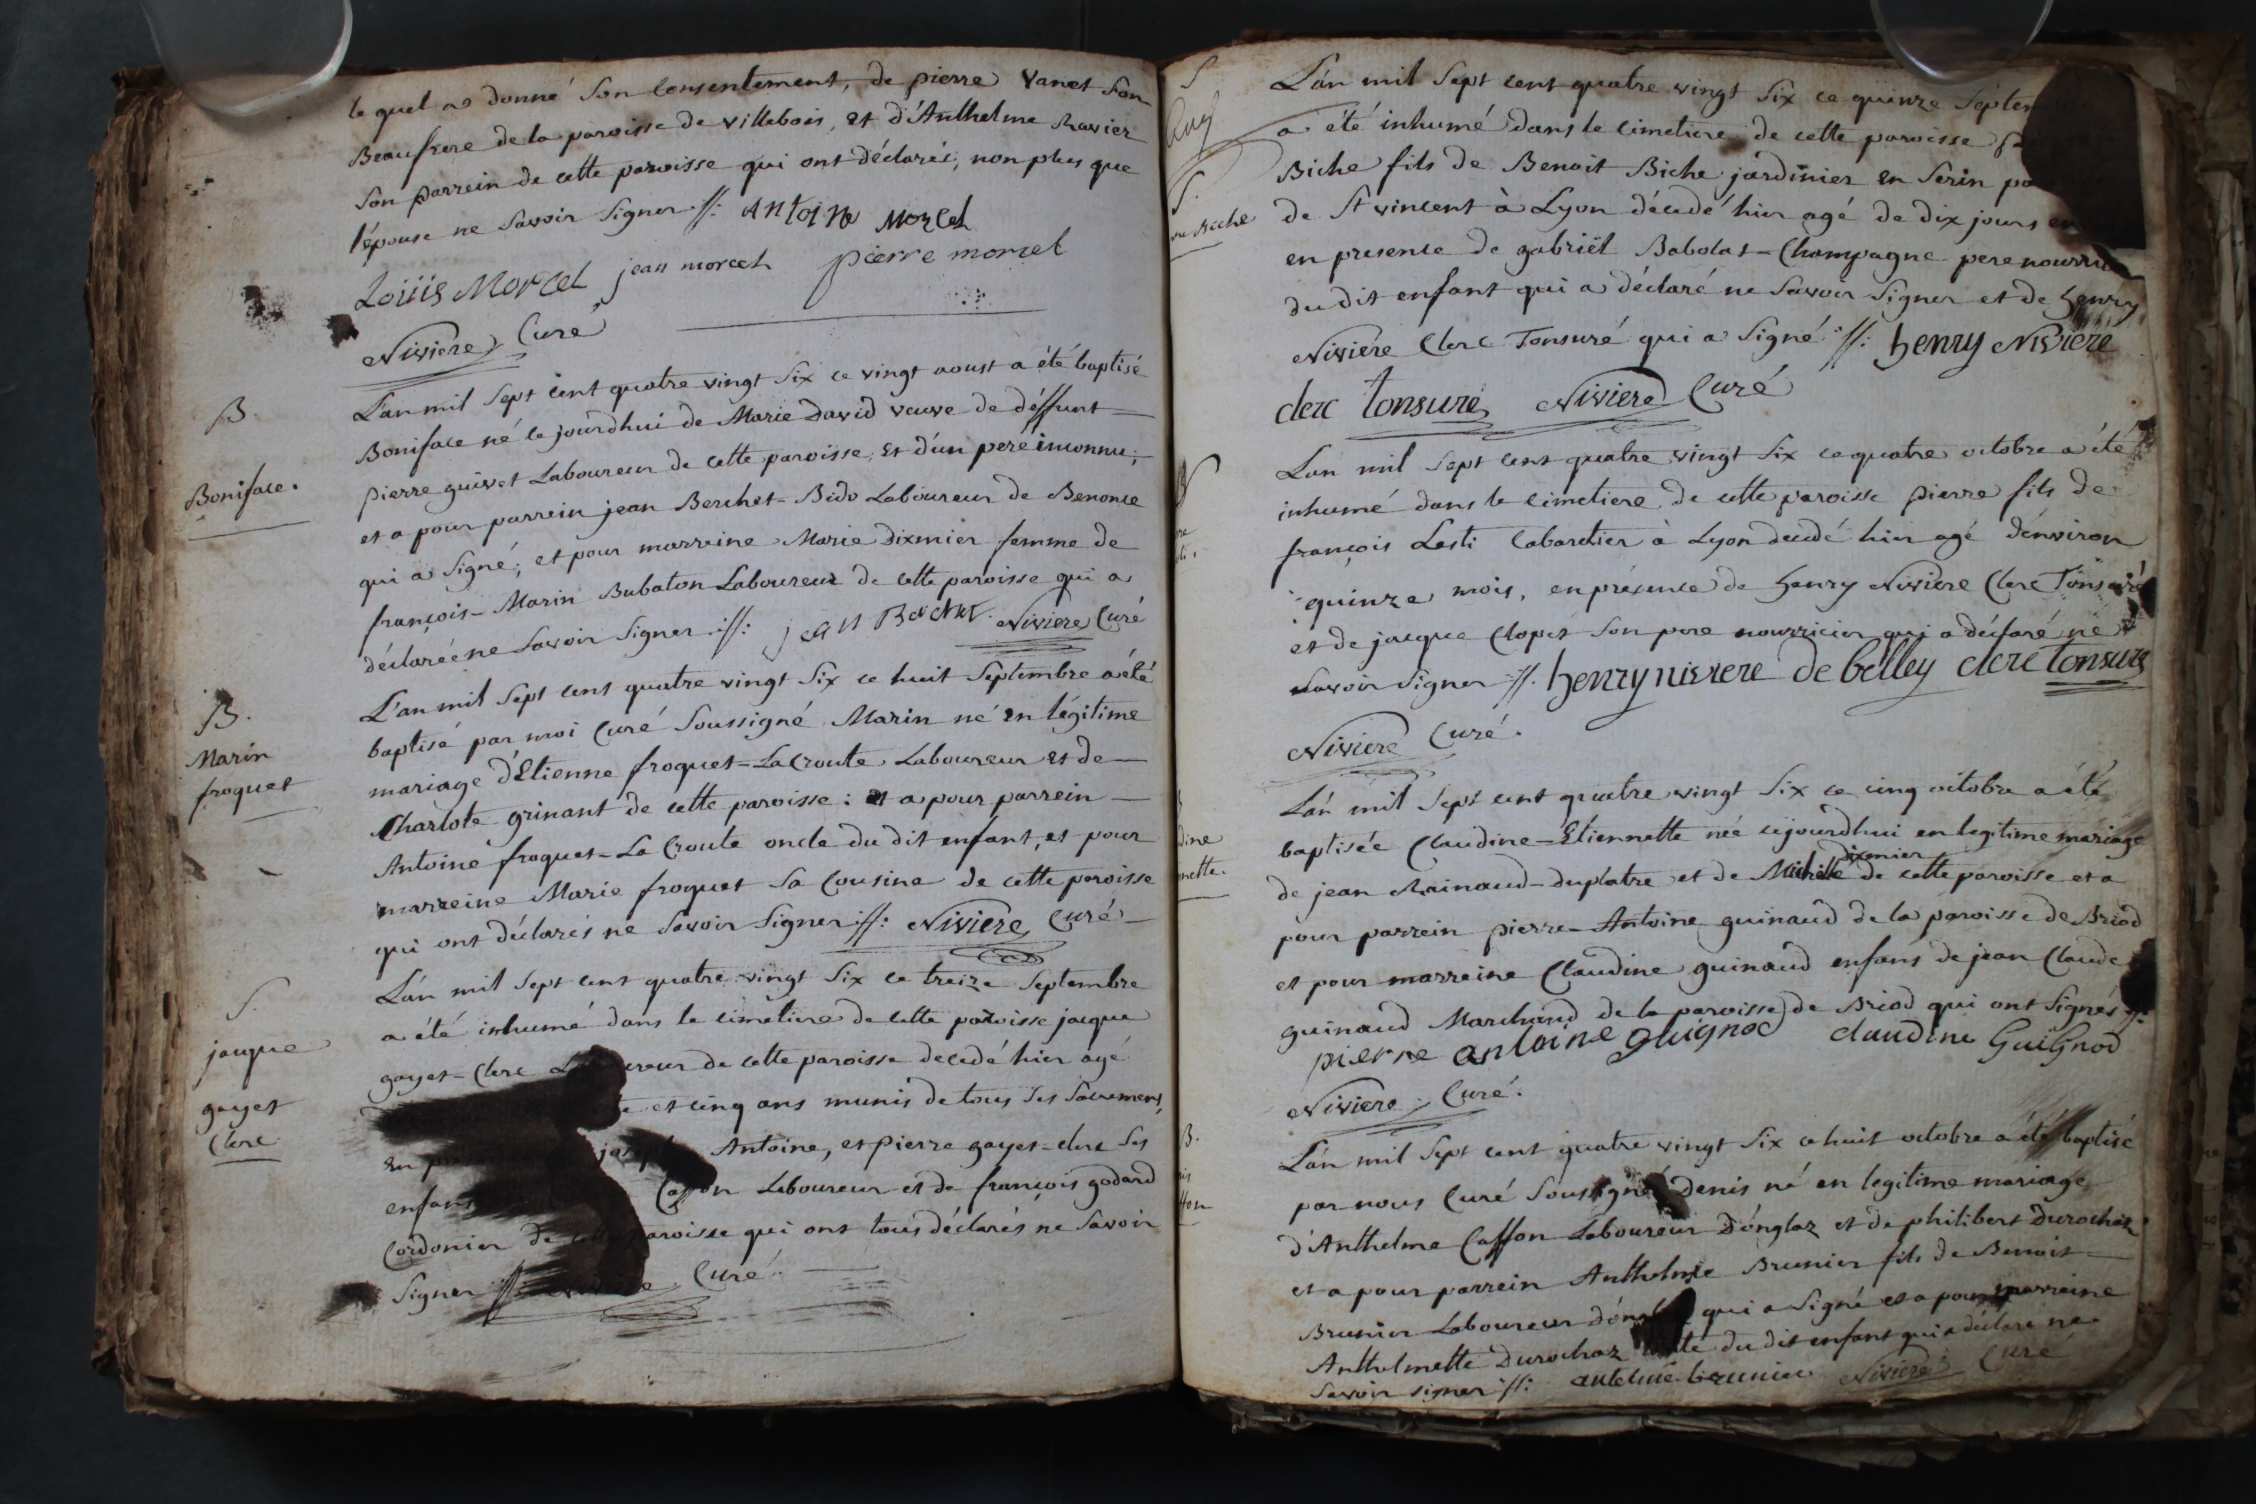 le quel a donné son consentement, de pierre vanet son
Beaufrere de la paroisse de villebois, et d'Anthelme Ravier
son parrein de cette paroisse qui ont déclarés, non plus que
l'épouse ne savoir signer ://: Antoine Morcel
Louis Morcel jean morcel pierre morcel
Niviere Curé
B.
Boniface.
L'an mil sept cent quatre vingt six ce vingt aoust a été baptisé
Boniface né ce jourdhui de Marie David veuve de déffunt
pierre guivet Laboureur de cette paroisse, et d'un pere inconnu;
et a pour parrein jean Berchet-Bido Laboureur de Benonce
qui a signé, et pour marreine Marie Dixmier femme de
françois-Marin Babaton Laboureur de cette paroisse qui a
déclarée ne savoir signer ://: jean Berchet Niviere Curé
B.
Marin
froquet
L'an mil sept cent quatre vingt six ce huit septembre a été
baptisé par moi Curé soussigné Marin né en légitime
mariage d'Etienne froquet-La Croute Laboureur et de
Charlote grinant de cette paroisse: et a pour parrein
Antoine froquet-La Croute oncle du dit enfant, et pour
marreine Marie froquet sa Cousine de cette paroisse
qui ont déclarés ne savoir signer ://: Niviere Curé
S.
jacque
gayet
Clerc
L'an mil sept cent quatre vingt six ce treize septembre
a été inhumé dans le cimetiere de cette paroisse jacque
gayet-Clerc de cette paroisse decedé hier agé
et cinq ans munis de tous ses sacremens,
Antoine, et pierre gayet-clerc ses
enfans Laboureur et de françois godard
Cordonier de paroisse qui ont tous déclarés ne savoir
signer Curé
S.
L'an mil sept cent quatre vingt six ce quinze
a été inhumé dans le cimetiere de cette paroisse
Biche fils de Benoit Biche jardinier en Serin
de St vincent à Lyon décedé hier agé de dix jours
en presence de gabriël Babolat-Champagne pere
du dit enfant qui a déclaré ne savoir signer et de henry
Niviére Clerc Tonsuré qui a signé ://: henry Niviere
clerc tonsuré Niviere Curé
L'an mil sept cent quatre vingt six ce quatre octobre a été
inhumé dans le cimetiere de cette paroisse pierre fils de
françois Lesti Cabaretier à Lyon decedé hier agé d'environ
quinze mois, en présence de henry Niviere Clerc Tonsuré
et de jacque Clopet son pere nourricier qui a déclaré ne
savoir signer ://: henry niviere de belley clerc tonsuré
Niviere Curé.
L'an mil sept cent quatre vingt six ce cinq octobre a été
baptisée Claudine-Etiennette née cejourdhui en legitime mariage
de jean Rainaud-duplatre et de Michelle dixmier de cette paroisse et a
pour parrein pierre-Antoine guinaud de la paroisse de Briod
et pour marreine Claudine guinaud enfans de jean Claude
guinaud Marchand de la paroisse de Briod qui ont signés
pierre antoine guignod claudine Guignod
Niviere Curé.
B.
L'an mil sept cent quatre vingt six ce huit octobre a été baptisé
par nous Curé soussigné denis né en legitime mariage
d'Anthelme Caffon Laboureur d'onglaz et de philibert Durochaz
et a pour parrein Anthelme Brunier fils de Benoit
Brunier Laboureur qui a signé et a pour marreine
Anthelmette Durochaz du dit enfant qui a déclaré ne
savoir signer ://: antelme brunier Niviere Curé